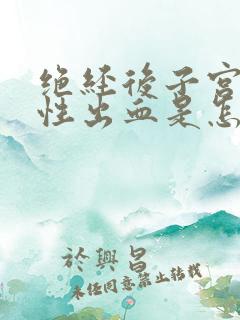 绝经後子宫
性出血是怎
於興昌
未经同意禁止转载